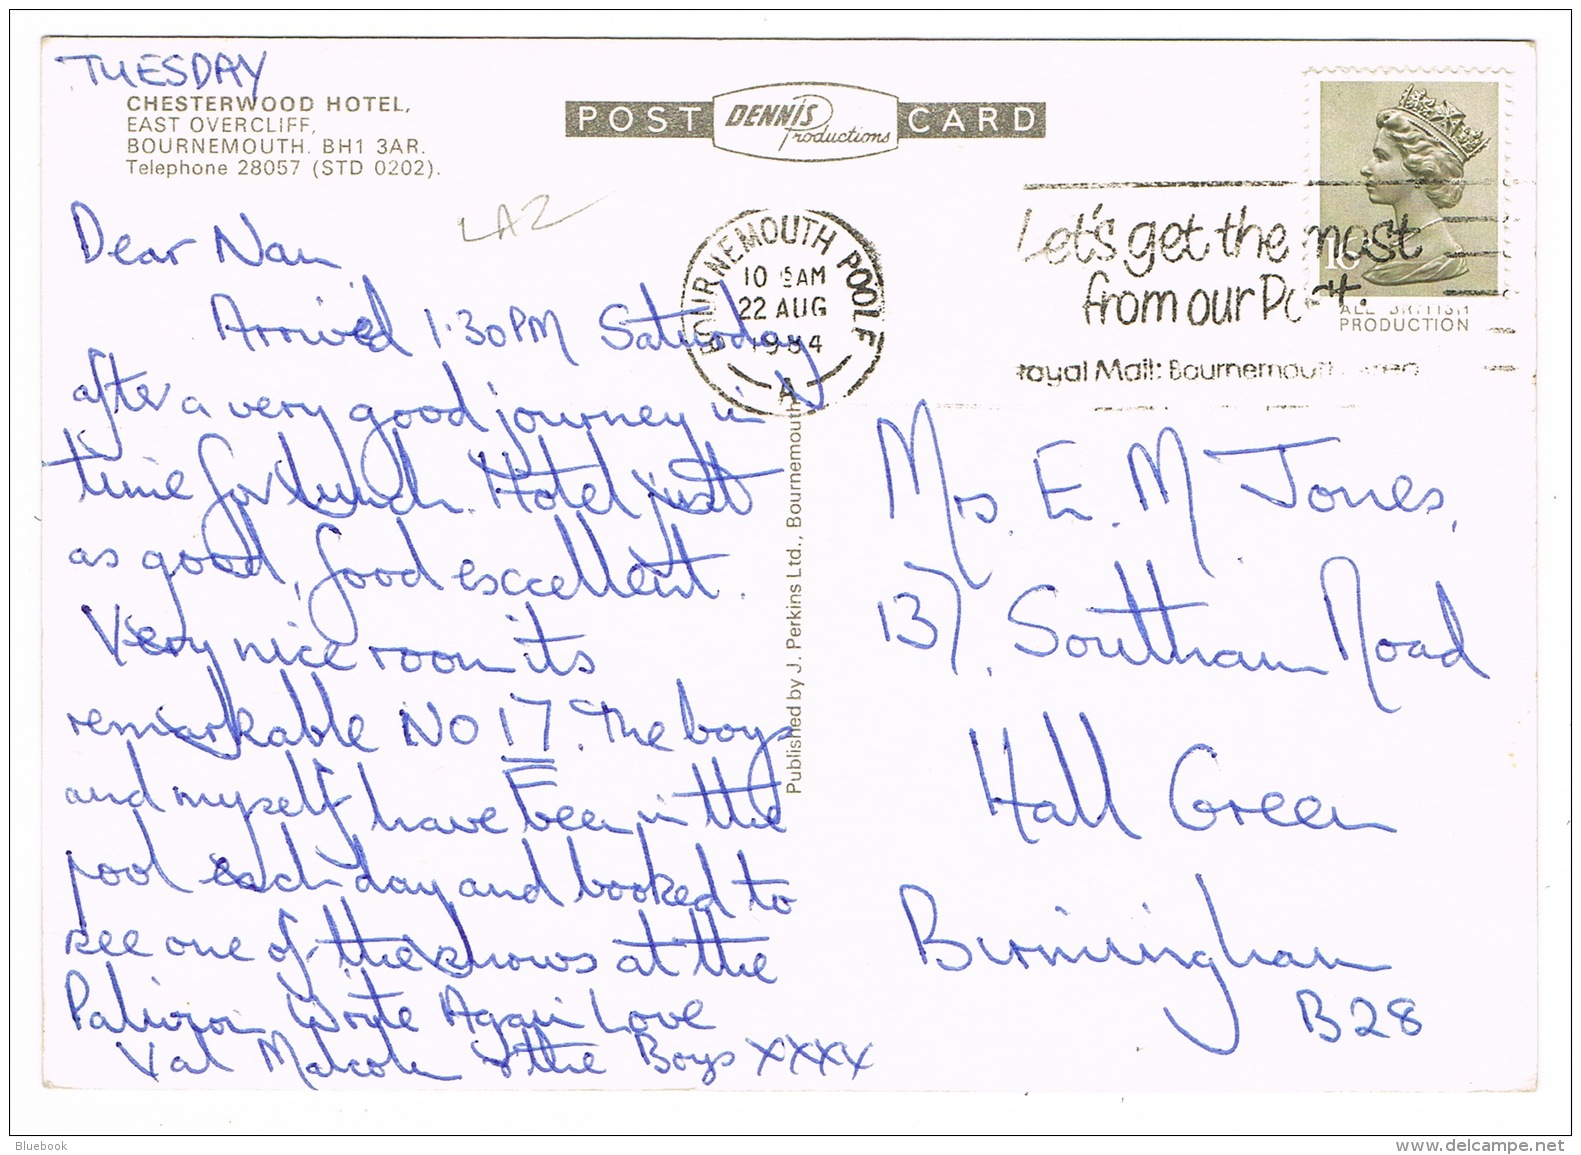 TUESDAY
CHESTERWOOD HOTEL,
EAST OVERCLIFF,
BOURNEMOUTH. BH1 3AR.
Telephone 28057 (STD 0202).
POST DENNIS Productions CARD
LAZ
Dear Nan
Arrived 1.30PM Saturday
after a very good journey in
time for lunch. Hotel just
as good, food excellent.
Very nice room its
remarkable NO 17. The boys
and myself have been in the
pool each day and booked to
see one of the shows at the
Pavilion Write Again Love
Val Malcolm & the Boys XXXX
Published by J. Perkins Ltd., Bournemouth
BOURNEMOUTH POOLE
10 AM
22 AUG
1984
A
Let's get the most
from our Post.
Royal Mail: Bournemouth Area
16
ALL BRITISH
PRODUCTION
Mrs. E. M Jones,
137. Southam Road
Hall Green
Birmingham
B28
Bluebook
www.delcampe.net